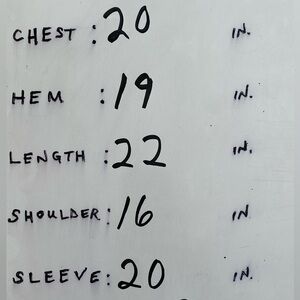 CHEST : 20 IN.
HEM : 19 IN.
LENGTH : 22 IN.
SHOULDER : 16 IN
SLEEVE : 20 IN.